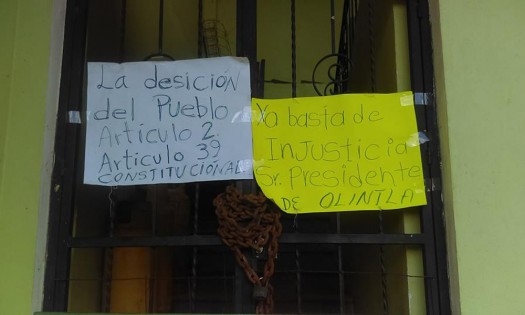 La desición
del Pueblo
Articulo 2
Articulo 39
CONSTITUCIONAL
Ya basta de
InJusticia
Sr. Presidente
DE OLINTLA